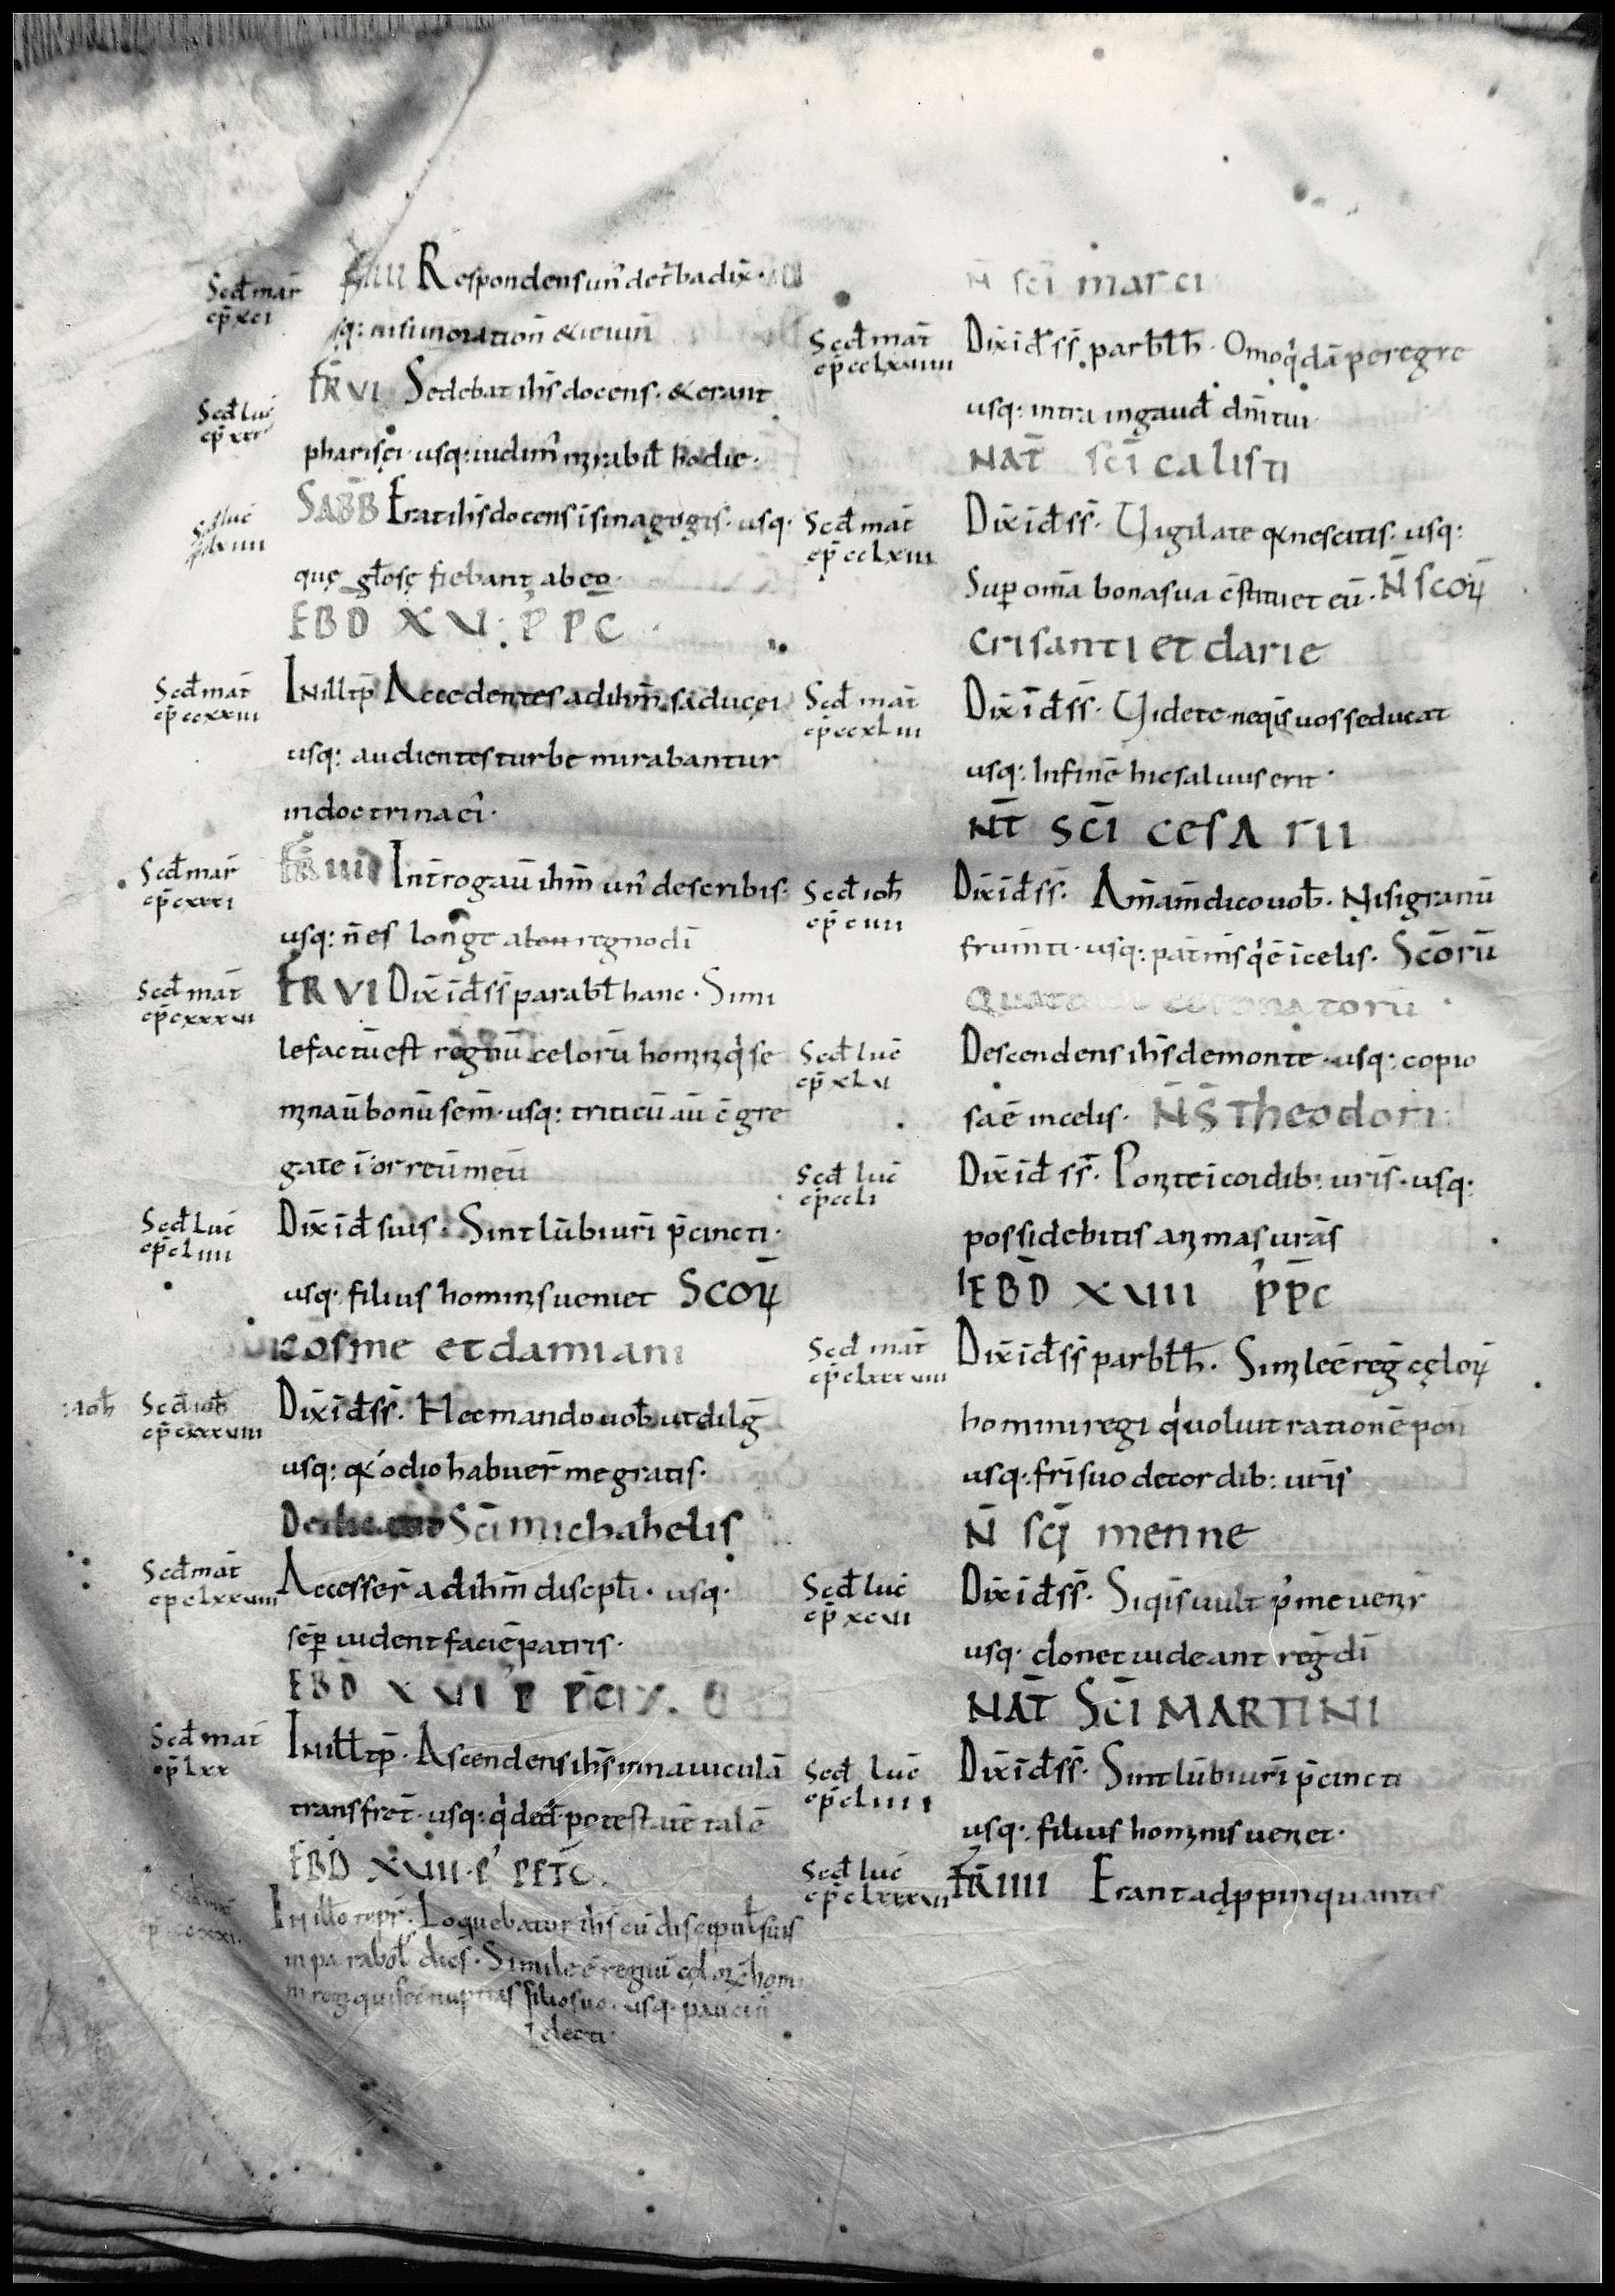 Scd̄ mar̄
cp̄ xci
FR IIII Respondens un̄ de t̄ba dix̄·
usq: nisi in oratiōn & ieiun̄
Scd̄ luc̄
FR VI Sedebat ih̄s docens· & erant
pharisęi· usq: uidim̄ mirabil̄ hodie·
luc̄
SABB Erat ih̄s docens ī sinagogis· usq·
quę gl̄osę fiebant ab eo·
EBD XV· P̄ P̄C
Scd̄ mat̄
cp̄ ccxxiii
IN ill tp̄ Accedentes ad ih̄m saducęi
usq: audientes turbe mirabantur
in doctrina ei·
Scd̄ mar̄
cp̄ cxxxi
FR IIII Int̄rogaū ih̄m un̄ de scribis·
usq: n̄ es longe a regno dī
Scd̄ mat̄
cp̄ cxxxvi
FR VI Dix̄ id̄ s̄s̄ parabl̄ hanc· Simi
le factū est regnū celorū homini q̇ se
minaū bonū sem̄· usq: triticū aū c̄gre
gate ī orreū meū
Scd̄ Luc̄
cp̄ cliiii
Dix̄ id̄ suis· Sint lūbi uri p̄cincti·
usq· filius hominis ueniet SCOꝜ
cosme et damiani
:ioh̄ Scd̄ ioh̄
cp̄ cxxxviiii
Dix̄ id̄ s̄s̄· Hec mando uob̄ ut dilḡ
usq: q̇ odio habuer̄ me gratis·
Dedicatio Sc̄i michahelis
Scd̄ mat̄
cp clxxviiii
Accesser̄ ad ih̄m discpl̄i· usq·
sēp uident faciē patris·
EBD XVI P̄ P̄C
Scd̄ mat̄
cp̄ lxx
IN ill̄ tp̄· Ascendens ih̄s in nauiculā
transfret̄· usq: q̇ ded̄ potestatē talē
EBD XVIII· P̄ PETC̄·
In illo tepr̄· Loquebatur ih̄s cū discipul̄ suis
in parabol̄ dicēs· Simile ē regnū cęloꝝ hom
ni regi qui fec̄ nuptias filio suo· usq· pauci ū
electi·
N̄ sc̄i marci
Scd̄ mat̄
cp̄ cclxviiii
Dix̄ id̄ s̄s̄ parbl̄ h̄· Omo q̇dā peregre
usq: intra in gaud̄ dn̄i tui
NAT̄ sc̄i calisti
Scd̄ mat̄
cp̄ cclxiii
Dix̄ id̄ s̄s̄· Uigilate q̇ nescitis· usq:
Sup om̄a bona sua c̄stituet eū· N̄ SCOꝜ
crisanti et darie
Scd̄ mat̄
cp̄ ccxliii
Dix̄ id̄ s̄s̄· Uidete ne q̇s uos seducat
usq: In finē hic saluus erit·
NT̄ SC̄I CESARII
Scd̄ ioh̄
cp̄ ciiii
Dix̄ id̄ s̄s̄· Am̄ am̄ dico uob̄· Nisi granū
frum̄ti· usq: pat̄ m̄s q̇ ē ī celis· Scōrū
quatuor coronatorū·
Scd̄ luc̄
cp̄ xlvi
Descendens ih̄s de monte· usq: copio
sa ē in celis· N̄ S̄ Theodori
Scd̄ luc̄
cp̄ ccli
Dix̄ id̄ s̄s̄· Ponite ī cordib: uris· usq:
possidebitis animas urās
EBD XVIII P̄ P̄C
Scd̄ mat̄
cp̄ clxxxviiii
Dix̄ id̄ s̄s̄ parbl̄ h̄· Simile ē reḡ cęloꝝ
homini regi q̇ uoluit rationē pon̄
usq· fri suo de cordib: uris
N̄ sc̄i menne
Scd̄ luc̄
cp̄ xcvi
Dix̄ id̄ s̄s̄· Siq̇s uult p̄ me uenir̄
usq· donec uideant reḡ dī
NAT̄ SC̄I MARTINI
Scd̄ luc̄
cp̄ cliiii
Dix̄ id̄ s̄s̄· Sint lūbi uri p̄cincti
usq: filius hominis uenet·
Scd̄ luc̄
cp̄ clxxxvi
FR IIII Erant adppinquantes